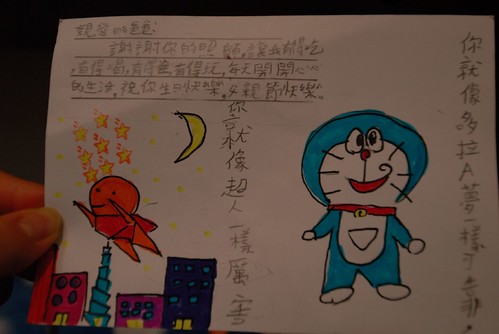 親愛的爸爸
謝謝你的照顧,讓我有得吃
,有得喝,有得穿,有得玩,每天開開心心
的生活,祝你生日快樂,父親節快樂。
你就像超人一樣厲害
你就像多拉A夢一樣可靠.